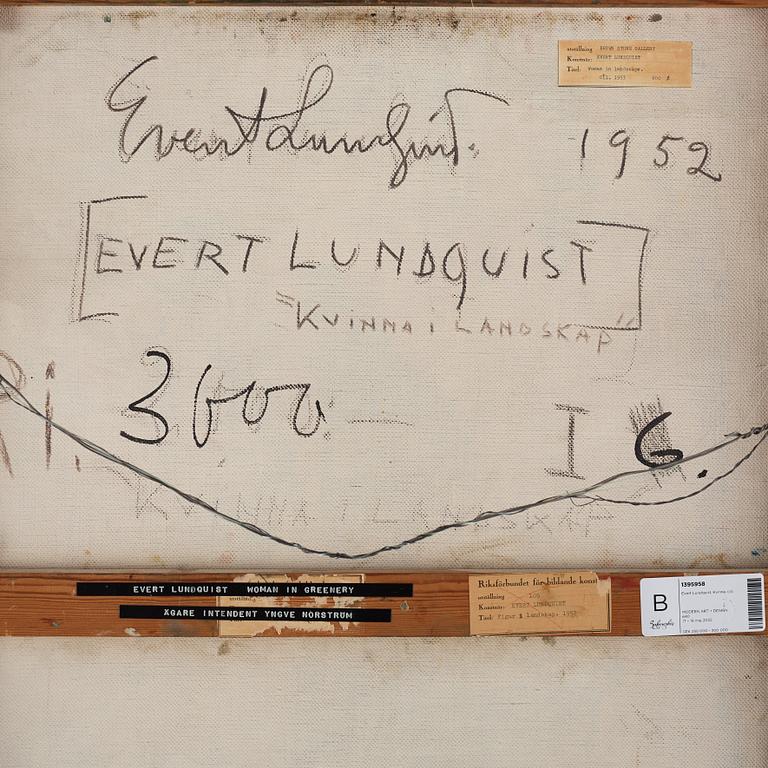 utställning BROWN STONE GALLERY
Konstnär: EVERT LUNDQUIST
Titel: Woman in landskape.
Oil. 1953 800 $
Evert Lundquist. 1952
[EVERT LUNDQUIST]
"KVINNA I LANDSKAP"
3600:—
I 6.
KVINNA I LANDSKAP
EVERT LUNDQUIST WOMAN IN GREENERY
ÄGARE INTENDENT YNGVE NORSTRÖM
Riksförbundet för bildande konst
utställning 105
Konstnär: EVERT LUNDQUIST
Titel: Figur i landskap. 1952
B
1395958
Evert Lundquist Kvinna i
MODERN ART + DESIGN